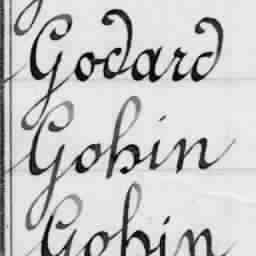 Godard
Gohin
Gohin